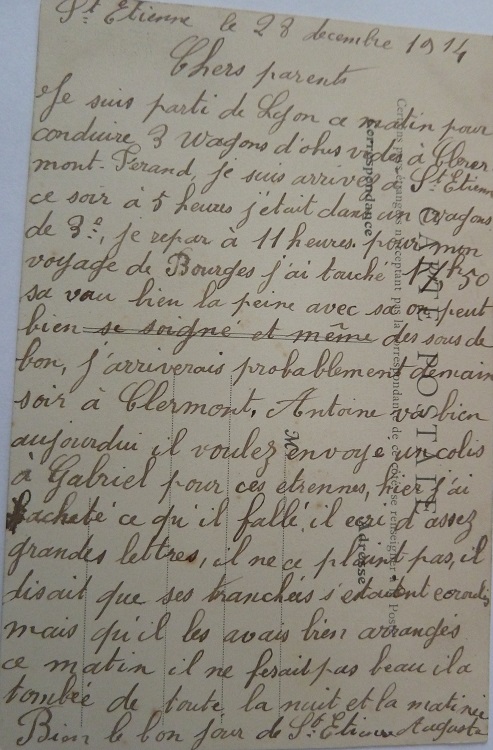 St Etienne le 28 decembre 1914
Chers parents
Je suis parti de Lyon ce matin pour
conduire 3 Wagons d'obus vides à Clerer
mont-Ferand, je suis arriver à St Etienne
ce soir à 5 heures j'était dans un wagons
de 3e, je repar à 11 heures. pour mon
voyage de Bourges j'ai touché 50
sa vau bien la peine avec sa on peut
bien se soigné et même des sous de
bon, j'arriverais probablement demain
soir à Clermont. Antoine va bien
aujourdui il voulez envoye un colis
à Gabriel pour ces etrennes, hier j'ai
acheté ce qu'il fallé. il ecri d'assez
grandes lettres, il ne ce plaint pas, il
disait que ses tranchées s'etaient ecroulés
mais qu'il les avais bien arrangés
ce matin il ne ferait pas beau il a
tombée de toute la nuit et la matinée
Bien le bon jour de St Etienne Auguste
CARTE POSTALE
Correspondance
Adresse
M